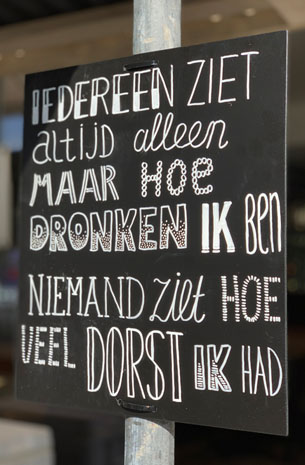 IEDEREEN ZIET
altIJD alleen
MAAR HOe
DRONKEN IK Ben
NIEMAND ziet HOE
VEEL DORST IK HAD